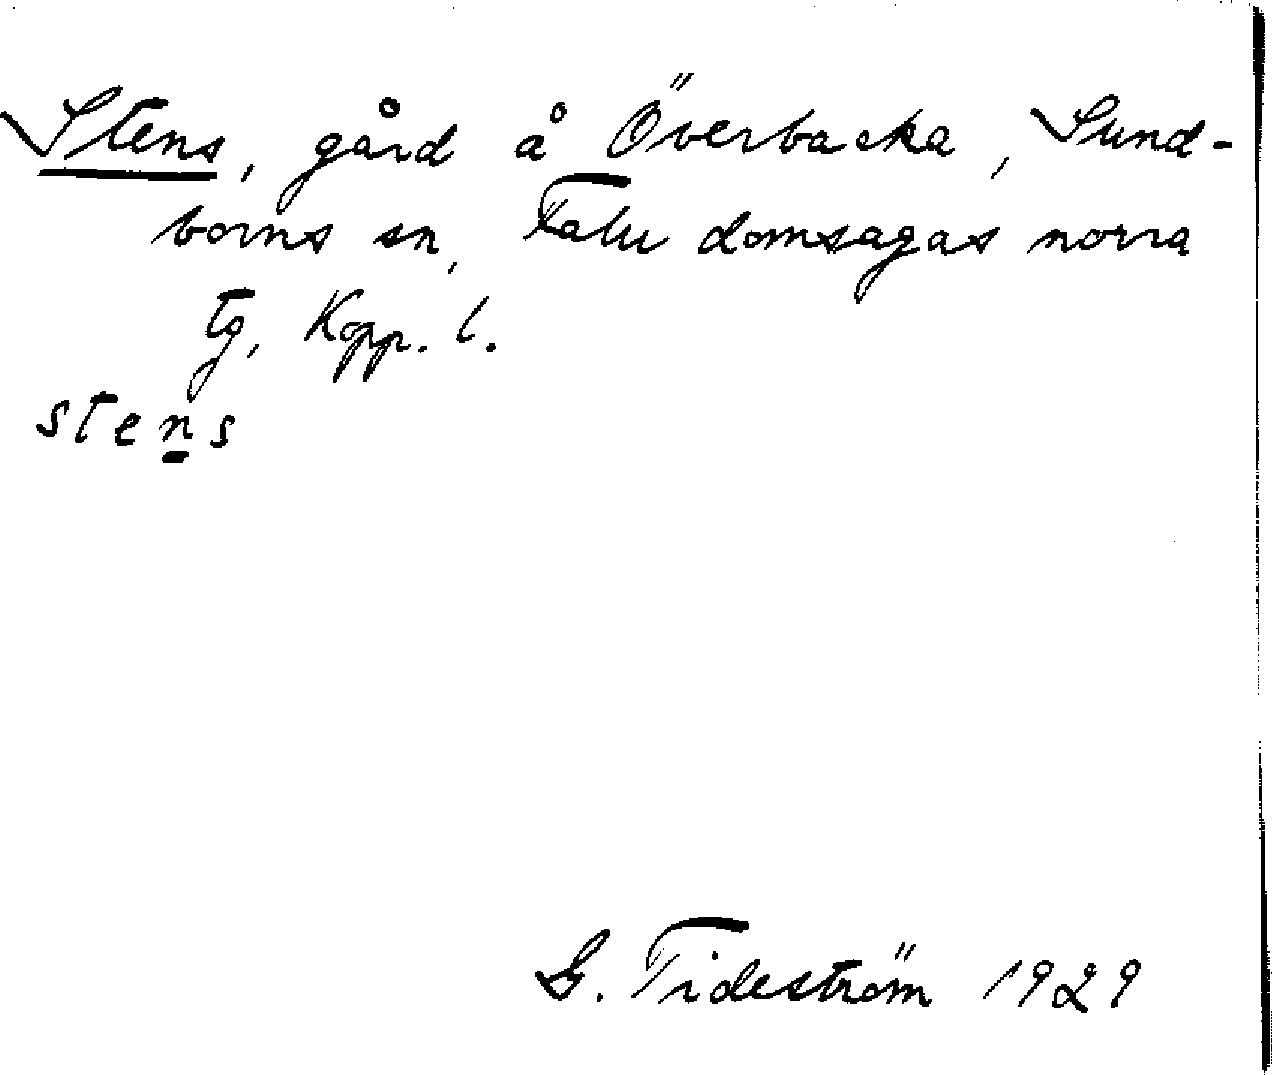 Stens, gård å Överbacka, Sund-
borns sn, Falu domsagas norra
tg, Kopp. l.
stens
G. Tideström 1929